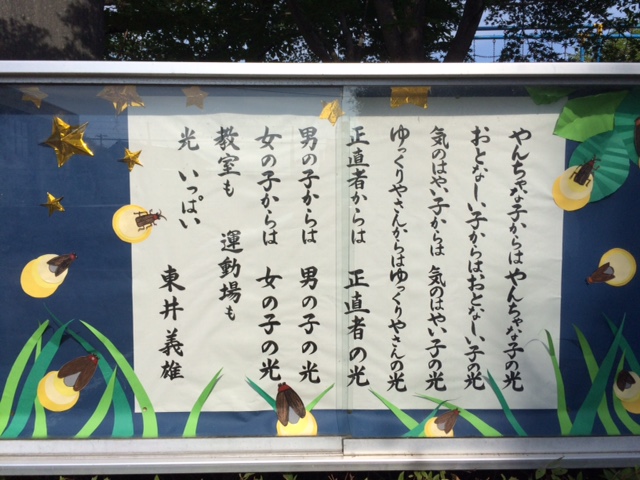 やんちゃな子からはやんちゃな子の光
おとなしい子からはおとなしい子の光
気のはやい子からは 気のはやい子の光
ゆっくりやさんからはゆっくりやさんの光
正直者からは 正直者の光
男の子からは 男の子の光
女の子からは 女の子の光
教室も 運動場も
光 いっぱい
東井義雄